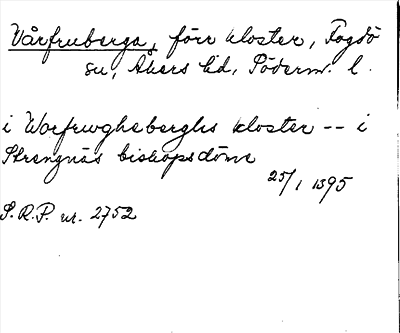 Vårfruberga, förr kloster, Fogdö
sn, Åkers hd, Söderm. l.
i Worfrwgheberghs kloster -- i
Strengnäs biskopsdöme
25/1 1395
S.R.P. nr. 2752